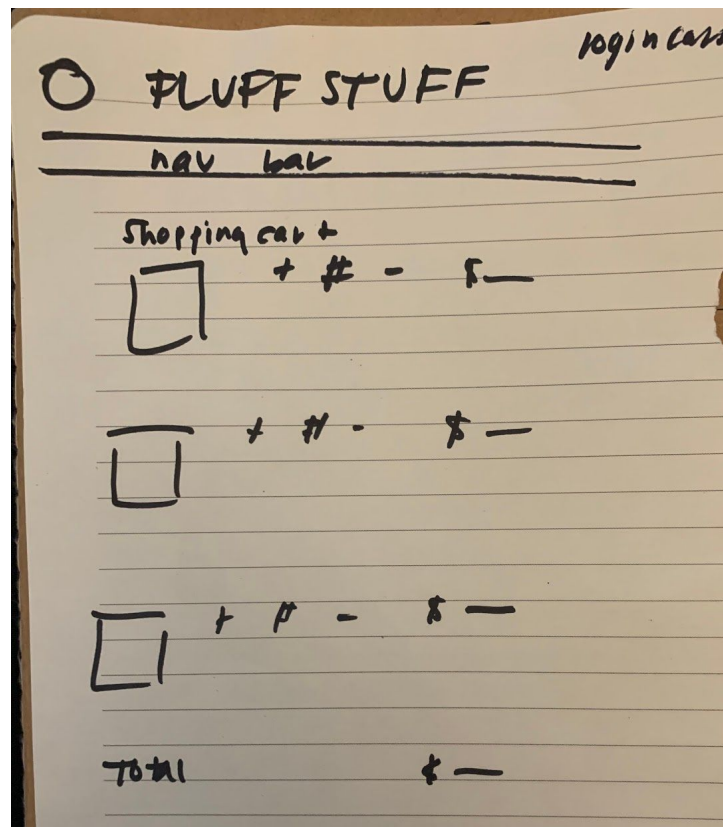 login cart
FLUFF STUFF
nav bar
Shopping cart
+ # - $
+ # - $
+ # - $
Total $